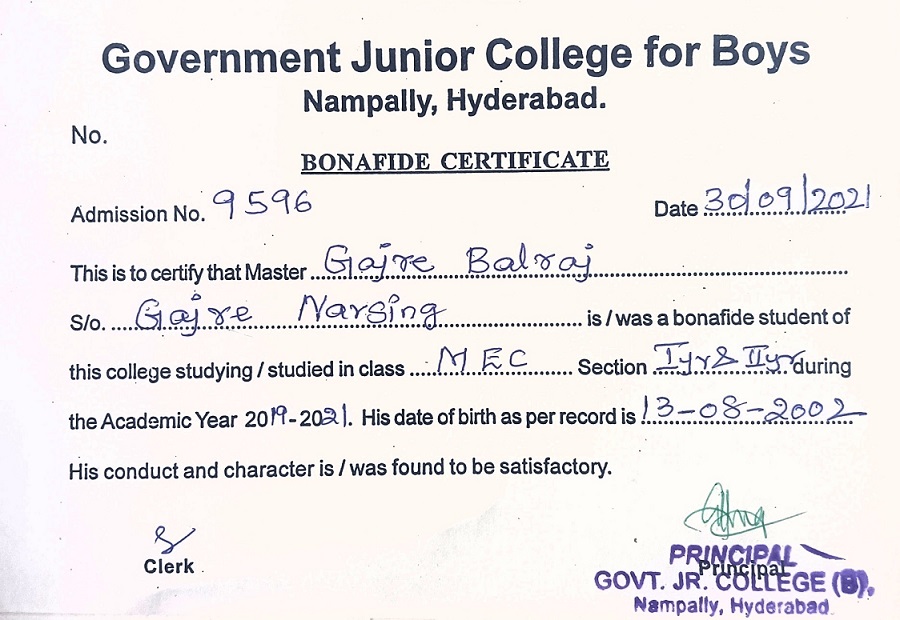 Government Junior College for Boys
Nampally, Hyderabad.
No.
BONAFIDE CERTIFICATE
Admission No. 9596 Date 30/09/2021
This is to certify that Master Gajre Balraj
S/o. Gajre Narsing is / was a bonafide student of
this college studying / studied in class MEC Section I yr & II yr during
the Academic Year 2019-2021. His date of birth as per record is 13-08-2002
His conduct and character is / was found to be satisfactory.
Clerk
Principal
PRINCIPAL
GOVT. JR. COLLEGE (B),
Nampally, Hyderabad